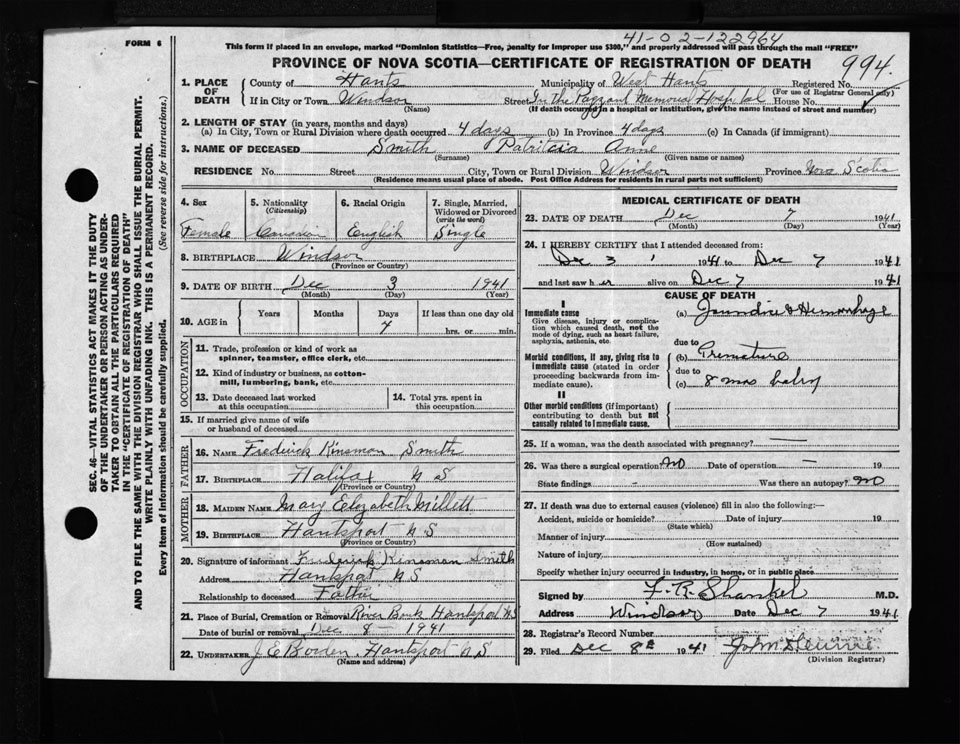 41-02-122964
FORM 6
This form if placed in an envelope, marked "Dominion Statistics—Free, penalty for improper use $300," and properly addressed will pass through the mail "FREE"
PROVINCE OF NOVA SCOTIA—CERTIFICATE OF REGISTRATION OF DEATH
994.
1. PLACE OF DEATH
County of Hants Municipality of West Hants Registered No.
(For use of Registrar General only)
If in City or Town Windsor Street In the Payzant Memorial Hospital House No.
(Name) (If death occurred in a hospital or institution, give the name instead of street and number)
2. LENGTH OF STAY (in years, months and days)
(a) In City, Town or Rural Division where death occurred 4 days (b) In Province 4 days (c) In Canada (if immigrant)
3. NAME OF DECEASED Smith Patricia Anne
(Surname) (Given name or names)
RESIDENCE No. Street City, Town or Rural Division Windsor Province Nova Scotia
(Residence means usual place of abode. Post Office Address for residents in rural parts not sufficient)
4. Sex
Female
5. Nationality
(Citizenship)
Canadian
6. Racial Origin
English
7. Single, Married,
Widowed or Divorced
(write the word)
Single
8. BIRTHPLACE Windsor
(Province or Country)
9. DATE OF BIRTH Dec 3 1941
(Month) (Day) (Year)
10. AGE in
Years Months Days If less than one day old
4 hrs. or min.
OCCUPATION
11. Trade, profession or kind of work as
spinner, teamster, office clerk, etc
12. Kind of industry or business, as cotton-
mill, lumbering, bank, etc
13. Date deceased last worked
at this occupation
14. Total yrs. spent in
this occupation
15. If married give name of wife
or husband of deceased
FATHER
16. NAME Frederick Kinsman Smith
17. BIRTHPLACE Halifax N S
(Province or Country)
MOTHER
18. MAIDEN NAME Mary Elizabeth Millett
19. BIRTHPLACE Hantsport N S
(Province or Country)
20. Signature of informant Frederick Kinsman Smith
Address Hantsport N S
Relationship to deceased Father
21. Place of Burial, Cremation or Removal River Bank Hantsport N S
Date of burial or removal Dec 8 - 1941
22. UNDERTAKER J E Borden Hantsport N S
(Name and address)
MEDICAL CERTIFICATE OF DEATH
23. DATE OF DEATH Dec 7 1941
(Month) (Day) (Year)
24. I HEREBY CERTIFY that I attended deceased from:
Dec 3 1941 to Dec 7 1941
and last saw her alive on Dec 7 1941
CAUSE OF DEATH
I
Immediate cause
Give disease, injury or complica-
tion which caused death, not the
mode of dying, such as heart failure,
asphyxia, asthenia, etc.
(a) Jaundice & Hemorrhage
due to
Morbid conditions, if any, giving rise to
immediate cause (stated in order
proceeding backwards from im-
mediate cause).
(b) Premature
due to
(c) 8 mos baby
II
Other morbid conditions (if important)
contributing to death but not
causally related to immediate cause.
25. If a woman, was the death associated with pregnancy? —
26. Was there a surgical operation? No Date of operation - 19
State findings - Was there an autopsy? No
27. If death was due to external causes (violence) fill in also the following:—
Accident, suicide or homicide? Date of injury 19
(State which)
Manner of injury
(How sustained)
Nature of injury
Specify whether injury occurred in industry, in home, or in public place
Signed by F. R. Shankel M.D.
Address Windsor Date Dec 7 1941
28. Registrar's Record Number
29. Filed Dec 8 1941
(Division Registrar)
SEC. 46—VITAL STATISTICS ACT MAKES IT THE DUTY
OF THE UNDERTAKER OR PERSON ACTING AS UNDER-
TAKER TO OBTAIN ALL THE PARTICULARS REQUIRED
IN THE "CERTIFICATE OF REGISTRATION OF DEATH"
AND TO FILE THE SAME WITH THE DIVISION REGISTRAR WHO SHALL ISSUE THE BURIAL PERMIT.
WRITE PLAINLY WITH UNFADING INK. THIS IS A PERMANENT RECORD.
Every item of information should be carefully supplied. (See reverse side for instructions).